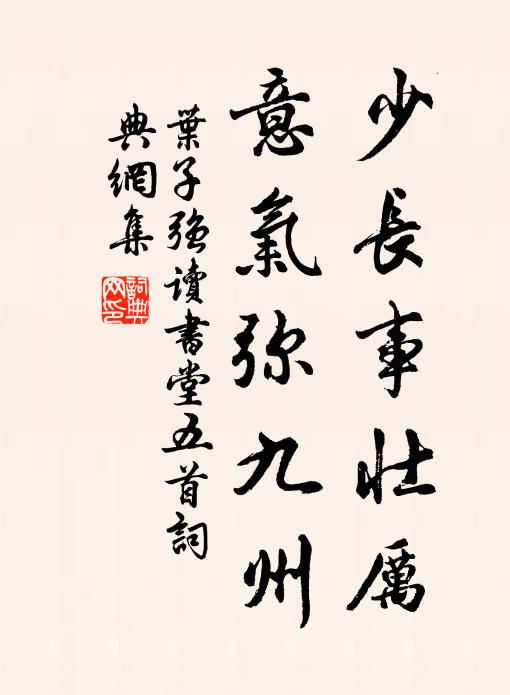 少長事壯厲
意氣弥九州
葉子强讀書堂五首詞
典網集
詞典网印